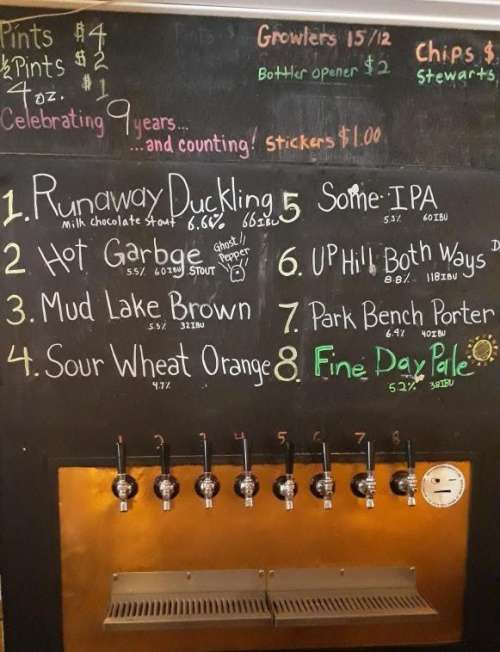 Pints $4
½ Pints $2
4 oz. $1
Growlers 15/12
Bottler opener $2
Chips $
Stewarts
Celebrating 9 years...
...and counting! Stickers $1.00
1. Runaway Duckling
Milk chocolate stout 6.66% 66IBU
2 Hot Garbge
5.5% 60IBU STOUT
Ghost!!
Pepper
3. Mud Lake Brown
5.5% 32IBU
4. Sour Wheat Orange
4.7%
5 Some IPA
5.3% 60IBU
6. UP Hill Both Ways D
8.8% 118IBU
7. Park Bench Porter
6.4% 40IBU
8 Fine Day Pale
5.2% 38IBU
1 2 3 4 5 6 7 8